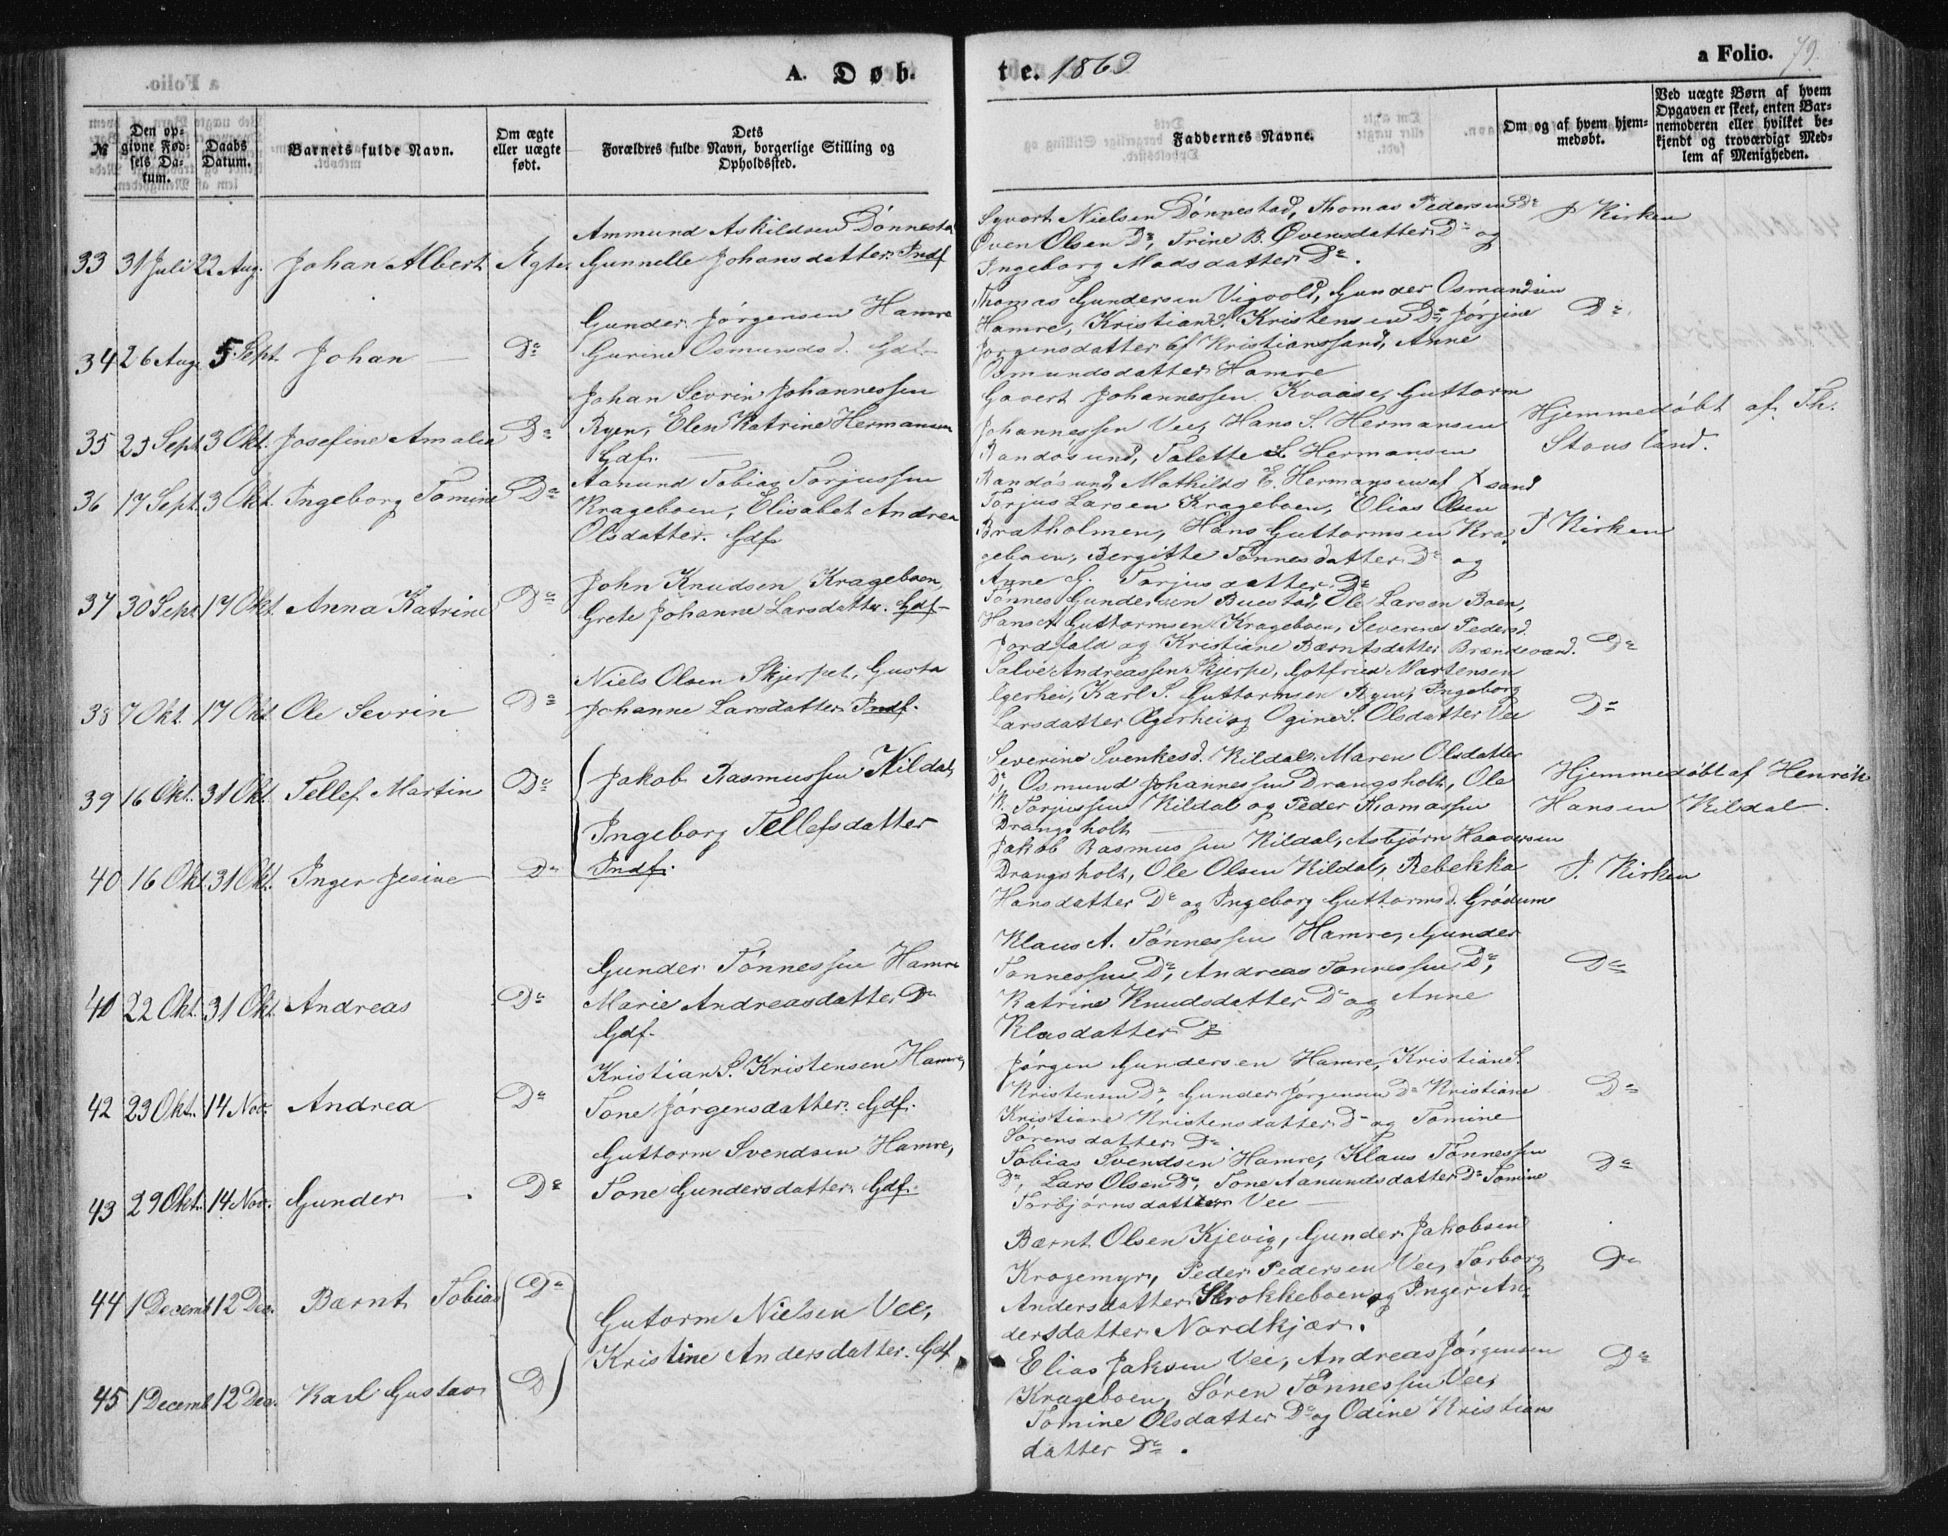 a Folio.
A. Døb.
te. 1869
a Folio. 79.
№
Den op-
givne Fød-
sels Da-
tum.
Daabs
Datum.
Barnets fulde Navn.
Om ægte
eller uægte
født.
Dets
Forældres fulde Navn, borgerlige Stilling og
Opholdssted.
Faddernes Navne.
Om og af hvem hjem-
medøbt.
Ved uægte Børn af hvem
Opgaven er skeet, enten Bar-
nemoderen eller hvilket be-
kjendt og troværdigt Med-
lem af Menigheden.
33 31 Juli 22 Aug. Johan Albert Ægte
Ammund Askildsen Dønnesta
Gunnelle Johansdatter. Indf
Syvert Nielsen Dønnestad, Thomas Pedersen Do
Øven Olsen Do, Trine B. Øvensdatter Do og
Ingeborg Madsdatter Do.
I Kirken
34 26 Aug. 5 Sept. Johan — Do
Gunder Jørgensen Hamre
Gurine Osmundsd. Gdf.
Thomas Gundersen Vigvold, Gunder Osmundsen
Hamre, Kristian S. Kristensen Do, Jørjine
Jørgensdatter af Kristianssand, Anne
Osmundsdatter Hamre
Do.
35 25 Sept. 3 Okt. Josefine Amalia Do
Johan Sevrin Johannessen
Ryen, Elen Katrine Hermansen
Gdf. —
Govert Johannessen Kvaase, Guttorm
Johannessen Vee, Hans S. Hermansen
Randøsund, Talette S. Hermansen
Randøsund, Mathilde E. Hermansen af Xsand
Hjemmedøbt af Th.
Stousland.
36 17 Sept. 3 Okt. Ingeborg Tomine Do
Aanund Tobias Torjussen
Krageboen, Elisabet Andrea
Olsdatter. Gdf
Torjus Larsen Krageboen, Elias Olsen
Bratholmen, Hans Guttormsen Kra-
geboen, Bergitte Tønnesdatter Do og
Anne G. Torjusdatter Do
I Kirken
37 30 Sept. 17 Okt. Anna Katrine Do
John Knudsen Krageboen,
Grete Johanne Larsdatter. Gdf—
Tønnes Gundersen Buestad, Ole Larsen Boen,
Hans A Guttormsen Krageboen, Severine Pedersd.
Jordfald og Kristiane Bærntsdatter Brændevand.
Do
38 7 Okt. 17 Okt. Ole Sevrin Do
Niels Olsen Skjerpet, Gusta
Johanne Larsdatter Indf.
Salve Andreassen Skjerpe, Gotfried Martensen
Egerhei, Karl S. Guttormsen Ryen, Ingeborg
Larsdatter Ægerhei og Ogine S. Olsdatter Vee
Do
39 16 Okt. 31 Okt. Tellef Martin Do
Jakob Rasmussen Kildal
Ingeborg Tellefsdatter
Indf.
Severine Svenkesd. Kildal, Maren Olsdatter
Do, Osmund Johannessen Drangsholt, Ole
K. Torjussen Kildal og Peder Thomassen
Drangsholt —
Hjemmedøbt af Henrik
Hansen Kildal.
40 16 Okt. 31 Okt. Inger Jesine Do
Jakob Rasmussen Kildal, Asbjørn Haaversen
Drangsholt, Ole Olsen Kildal, Rebekka
Hansdatter Do og Ingeborg Guttormsd. Grødum
I. Kirken
40 22 Okt. 31 Okt. Andreas Do
Gunder Tønnessen Hamre
Marie Andreasdatter Do
Gdf.
Klaus A. Tønnessen Hamre, Gunder
Tønnessen Do, Andreas Tønnessen Do,
Katrine Knudsdatter Do og Anne
Klasdatter Do
Do
42 23 Okt. 14 Nov. Andrea Do
Kristian S. Kristensen Hamre,
Tone Jørgensdatter. Gdf.
Jørgen Gundersen Hamre, Kristian S.
Kristensen Do, Gunder Jørgensen Do Kristiane
Kristiane Kristensdatter Do og Tomine
Sørensdatter Do
Do
43 29 Okt. 14 Nov. Gunder. Do
Guttorm Svendsen Hamre,
Tone Gundersdatter. Gdf.
Tobias Svendsen Hamre, Klaus Tønnessen
Do, Lars Olsen Do, Tone Aanundsdatter Do Tomine
Torbjørnsdatter Vee —
Do
44 1 Decemb 12 Dec. Bærnt Tobias Do
Gutorm Nielsen Vee,
Kristine Andersdatter. Gdf
Bærnt Olsen Kjevig, Gunder Jakobsen
Kragemyr, Peder Pedersen Vee, Torborg
Andersdatter Skrokkeboen og Inger An-
dersdatter Nordkjær.
Do
45 1 Decemb 12 Dec. Karl Gustav D
Elias Jaksen Vee, Andreas Jørgensen
Krageboen, Søren Tønnessen Vee,
Tomine Olsdatter Do og Odine Kristians
datter Do.
Do